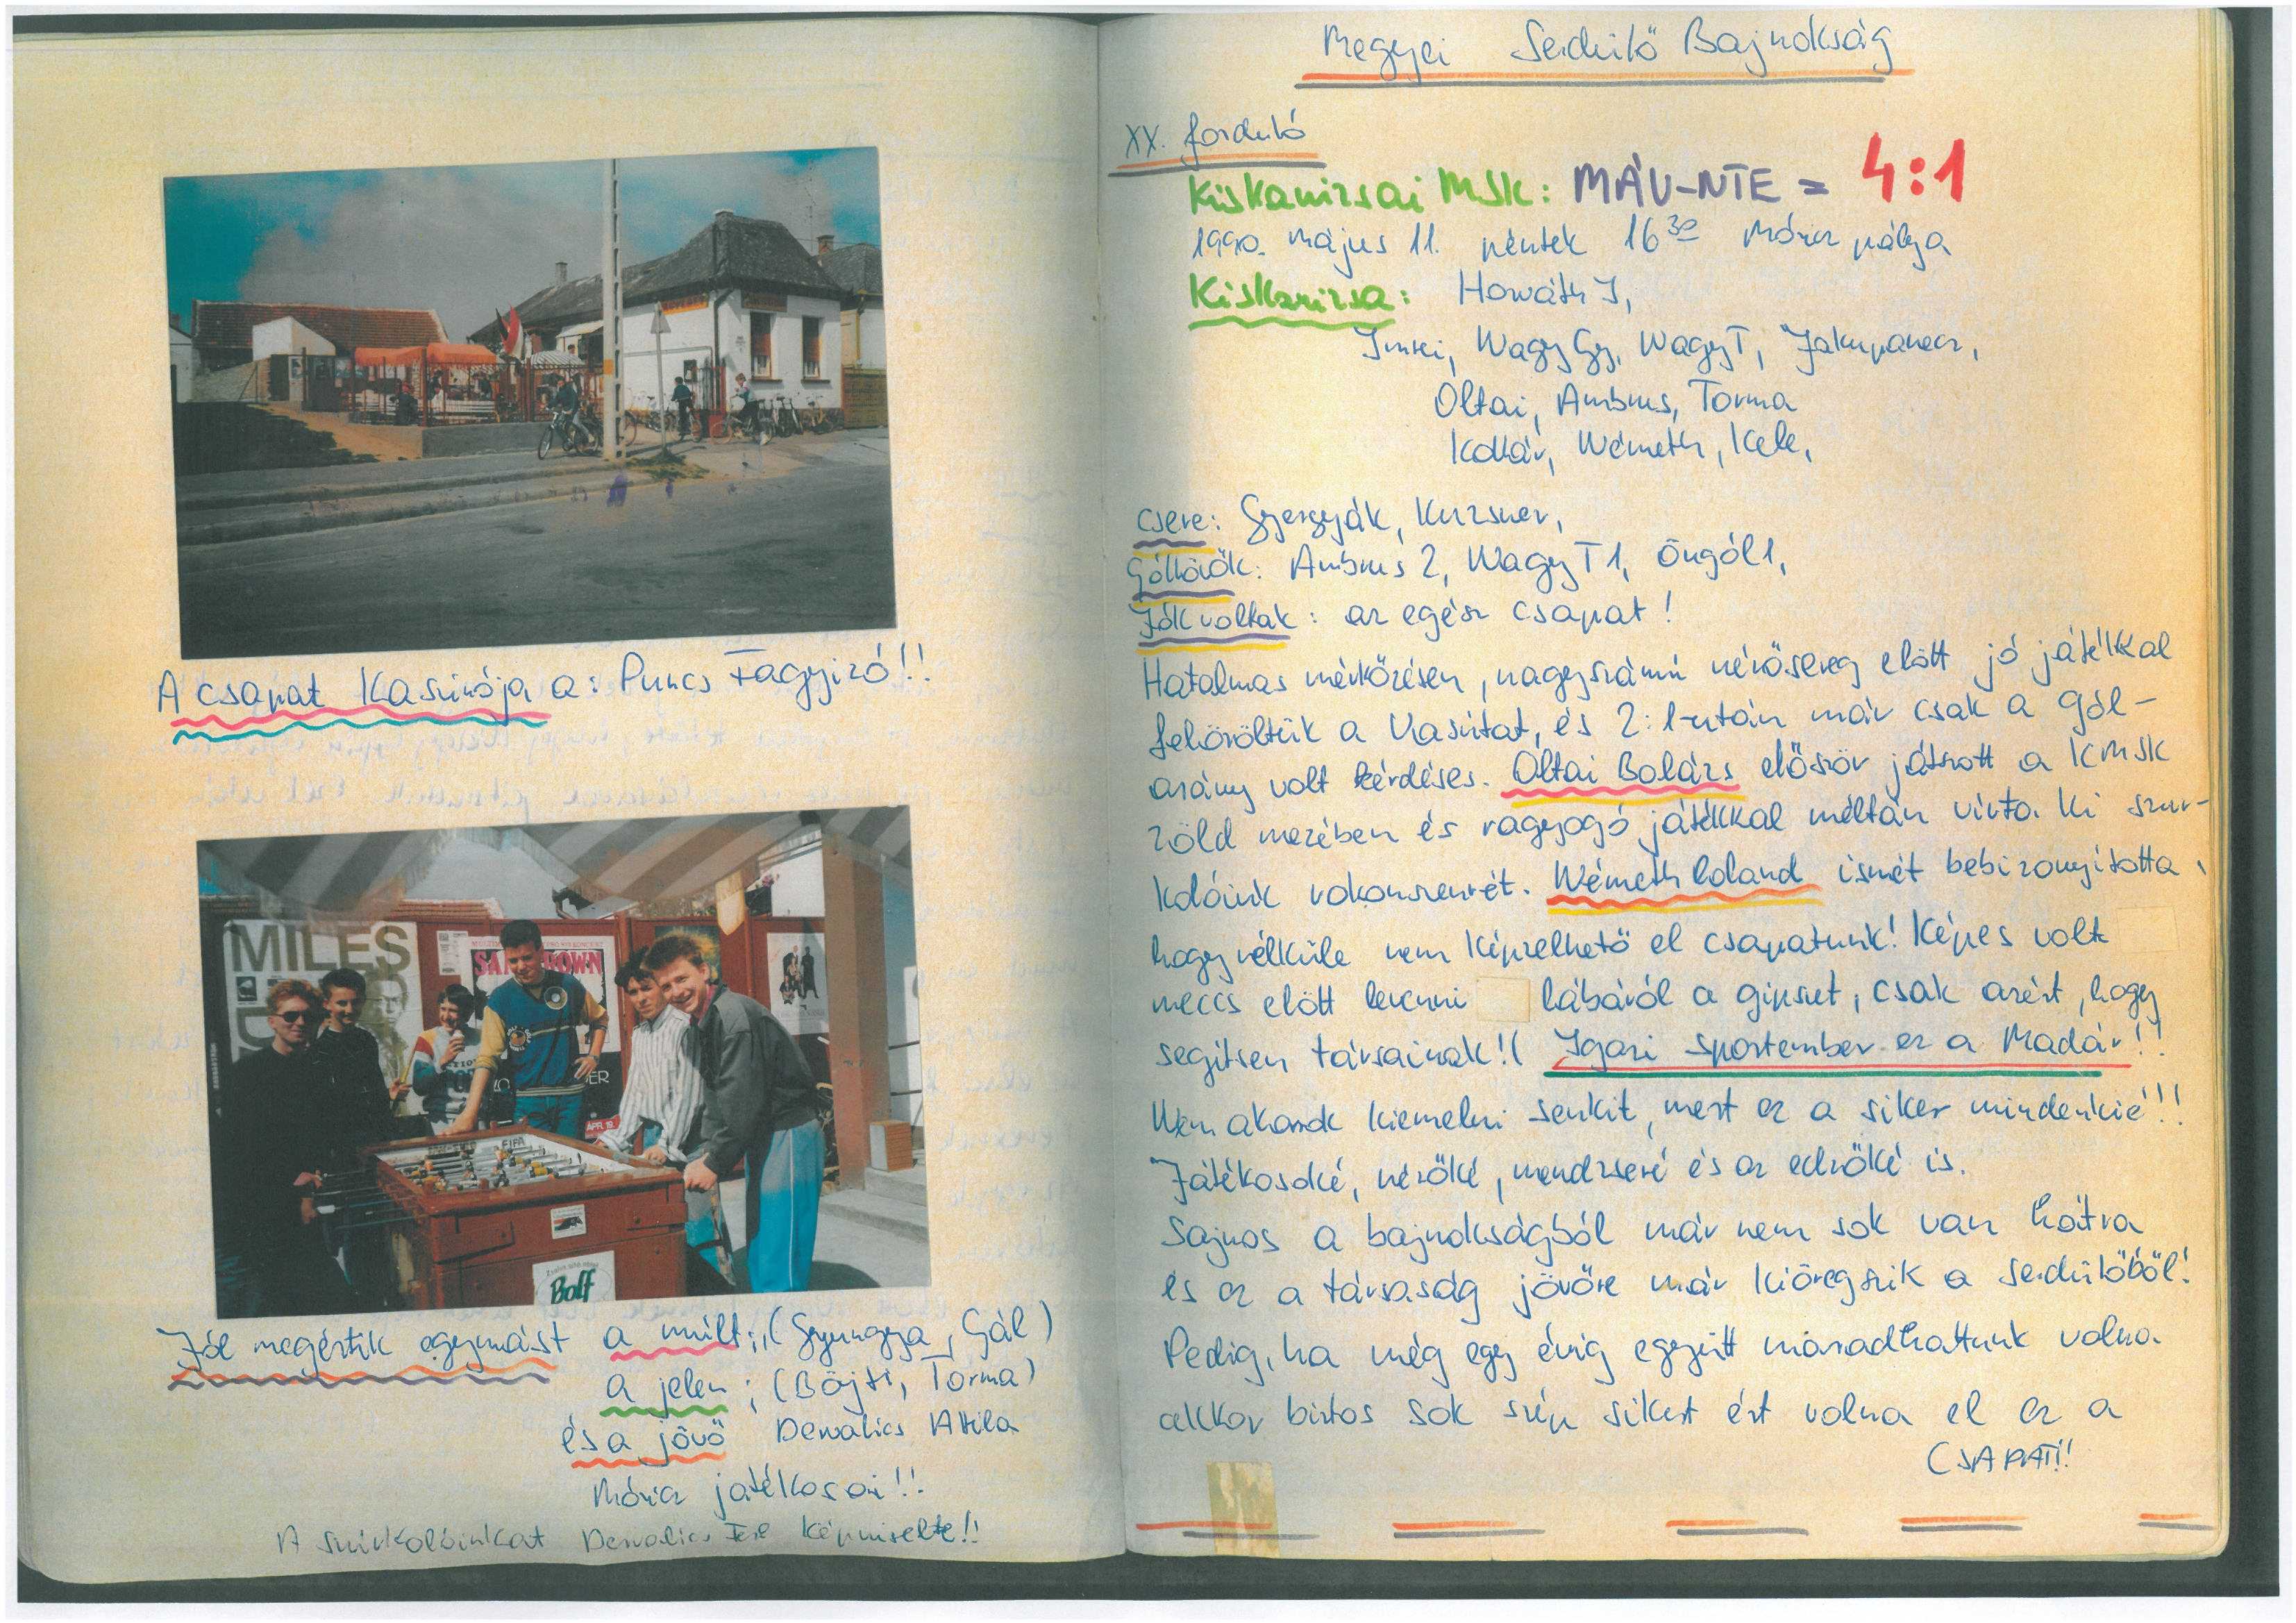 A csapat Kaszinója a: Puncs Fagyizó!!
MILES
D
SAM BROWN
ÁPR. 19.
FIFA
Bolf
Jól megértik egymást a múlt; (Gyungya, Gál)
a jelen; (Böjti, Torma)
és a jövő Dervalics Attila
Móricz játékosai!!
A szurkolóinkat Dervalics Feri képviselte!!
Megyei Serdülő Bajnokság
XX. forduló
Kiskanizsai MSK: MÁV-NTE = 4:1
1990. május 11. péntek 16 30 Móricz pálya
Kiskanizsa: Horváth J,
Imrei, Nagy Gy, Nagy T, Jakupanecz,
Oltai, Ambrus, Torma
Kollár, Németh, Kele,
csere: Gyergyák, Kurzsner,
Góllövők: Ambrus 2, Nagy T 1, Öngól 1,
Jók voltak: az egész csapat!
Hatalmas mérkőzésen, nagyszámú nézősereg előtt jó játékkal
felőröltük a Vasútat, és 2:1-után már csak a gól-
arány volt kérdéses. Oltai Balázs először játszott a KMSK
zöld mezében és ragyogó játékkal méltán vívta ki szur-
kolóink rokonszenvét. Németh Roland ismét bebizonyította,
hogy nélküle nem képzelhető el csapatunk! Képes volt
meccs előtt levenni lábáról a gipszet, csak azért, hogy
segítsen társainak!( Igazi sportember ez a Madár!!
Nem akarok kiemelni senkit, mert ez a siker mindenkié!!!
Játékosoké, nézőké, mendzseré és az edzőké is.
Sajnos a bajnokságból már nem sok van hátra
és ez a társaság jövőre már kiöregszik a serdülőből!
Pedig, ha még egy évig együtt maradhattunk volna
akkor biztos sok szép sikert ért volna el ez a
CSAPAT!!